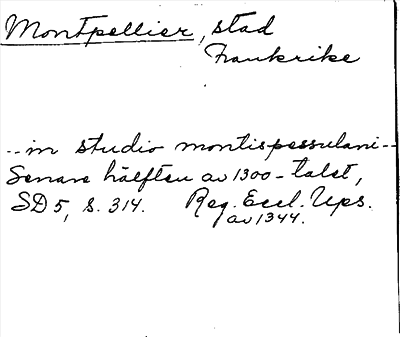 Montpellier, stad
Frankrike
-- in studio montispessulani --
Senare hälften av 1300-talet,
SD 5, s. 314. Reg. Eccl. Ups.
av 1344.